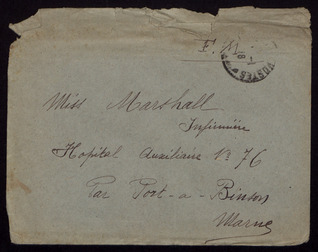 F. M.
POSTES
Miss Marshall
Infirmière
Hopital Auxiliaire No 76
Par Port-a-Binson
Marne